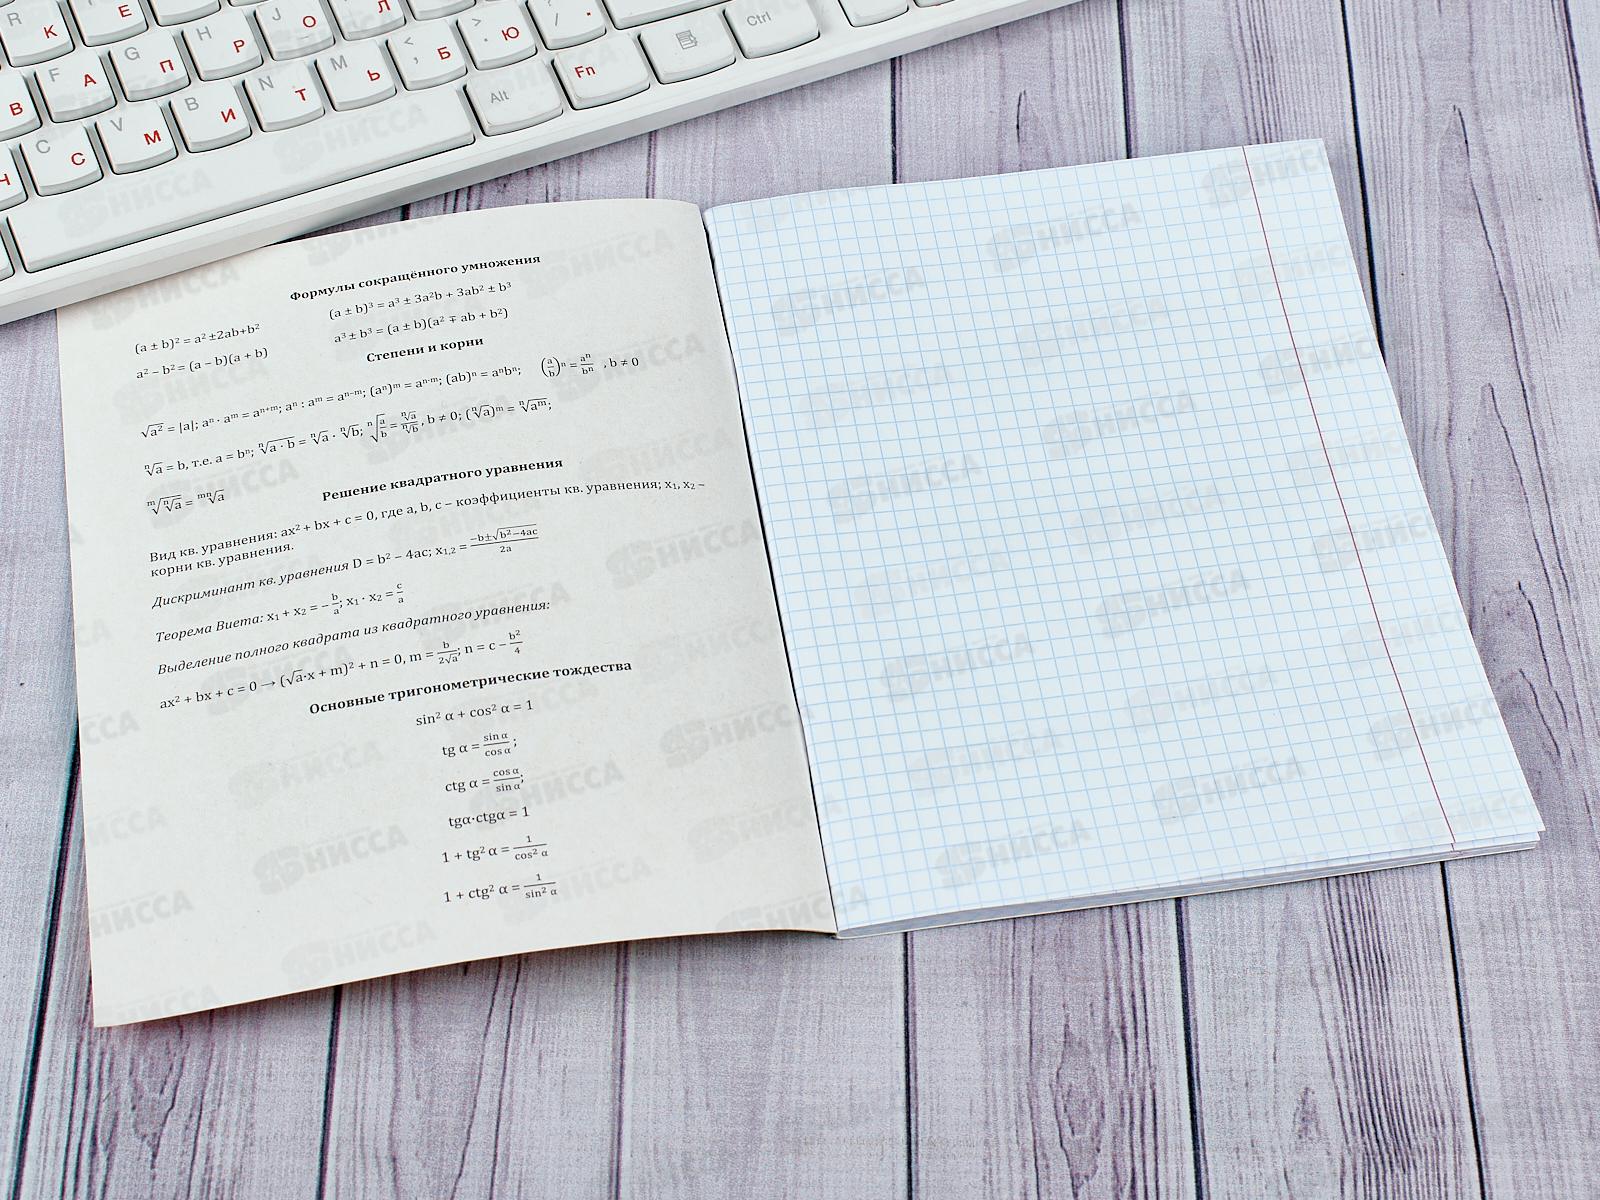 R К E Е Т J О Л > . Ю ? / . Ctrl
F А G П H Р N Т M Ь < , Б Fn
В C С V М B И Alt
Ч
Формулы сокращённого умножения
(a ± b)³ = a³ ± 3a²b + 3ab² ± b³
(a ± b)² = a² ±2ab+b²
a³ ± b³ = (a ± b)(a² ∓ ab + b²)
a² − b² = (a − b)(a + b)
Степени и корни
√a² = |a|; aⁿ · aᵐ = aⁿ⁺ᵐ; aⁿ : aᵐ = aⁿ⁻ᵐ; (aⁿ)ᵐ = aⁿ·ᵐ; (ab)ⁿ = aⁿbⁿ; (a/b)ⁿ = aⁿ/bⁿ , b ≠ 0
ⁿ√a = b, т.е. a = bⁿ; ⁿ√(a · b) = ⁿ√a · ⁿ√b; ⁿ√(a/b) = ⁿ√a/ⁿ√b, b ≠ 0; (ⁿ√a)ᵐ = ⁿ√aᵐ;
ᵐ√(ⁿ√a) = ᵐⁿ√a
Решение квадратного уравнения
Вид кв. уравнения: ax² + bx + c = 0, где a, b, c – коэффициенты кв. уравнения; x₁, x₂ –
корни кв. уравнения.
Дискриминант кв. уравнения D = b² − 4ac; x₁,₂ = (−b±√(b²−4ac))/2a
Теорема Виета: x₁ + x₂ = − b/a; x₁ · x₂ = c/a
Выделение полного квадрата из квадратного уравнения:
ax² + bx + c = 0 → (√a·x + m)² + n = 0, m = b/(2√a); n = c − b²/4
Основные тригонометрические тождества
sin² α + cos² α = 1
tg α = sin α/cos α;
ctg α = cos α/sin α;
tgα·ctgα = 1
1 + tg² α = 1/cos² α
1 + ctg² α = 1/sin² α